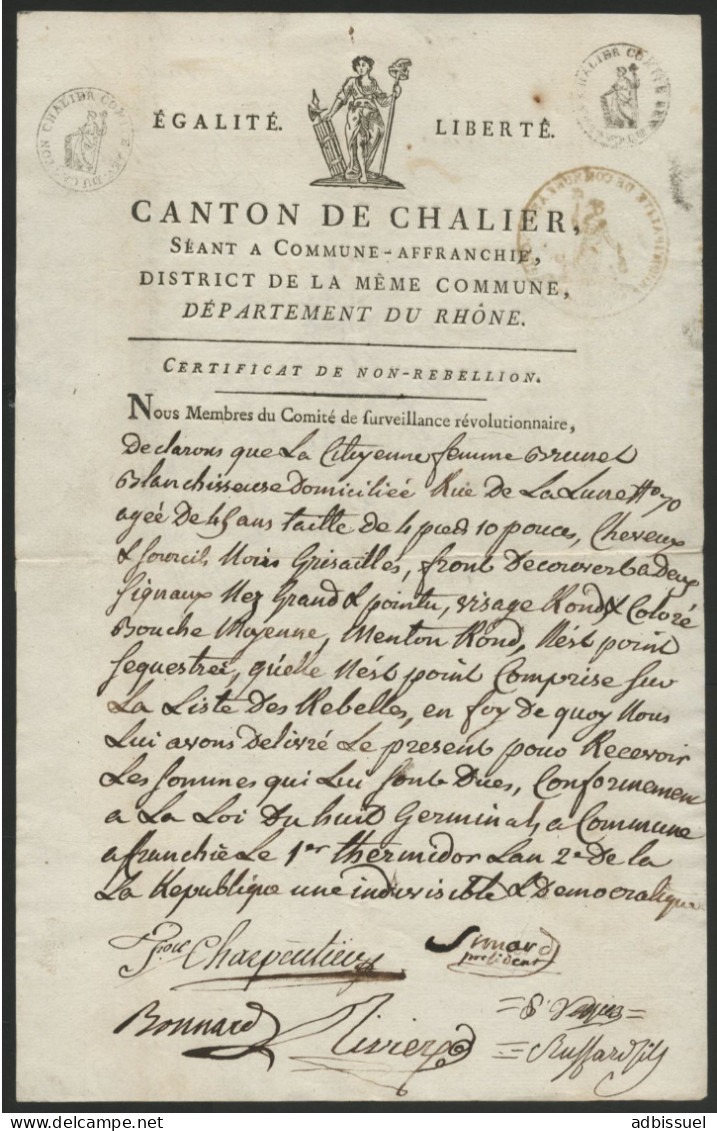 ÉGALITÉ. LIBERTÉ.
CANTON DE CHALIER,
SÉANT A COMMUNE-AFFRANCHIE,
DISTRICT DE LA MÊME COMMUNE,
DÉPARTEMENT DU RHÔNE.
CERTIFICAT DE NON-REBELLION.
Nous Membres du Comité de surveillance révolutionnaire,
Declarons que La Citoyenne femme Brunet
Blanchisseuse Domiciliée Rue De La Lune No 70
agée De 45 ans taille de 4 pied 10 pouces, Cheveux
& sourcils Noirs Grisailles, front Decouvert a Deux
signaux Nez Grand & pointu, visage Rond & Coloré
Bouche Moyenne, Menton Rond, N'est point
sequestreé, qu'elle N'est point Comprise sur
La Liste Des Rebelles, en foy De quoy Nous
Lui avons Delivré Le present pour Recevoir
Les sommes qui Lui sont Dues, Conformement
a La Loi Du huit Germinal, a Commune
affranchie Le 1er thermidor Lan 2e De la
La Republique une indivisible & Democratique
Charpentier
Simard
president
Bonnard
Rivier
Ruffard fils
adbissuel